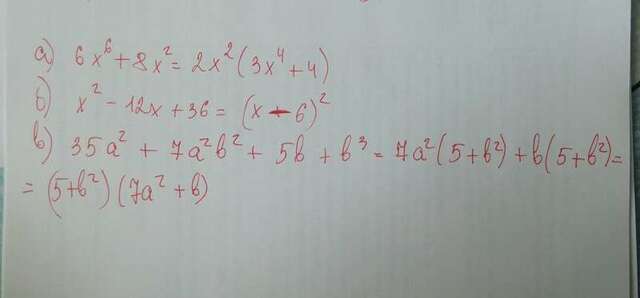 а) 6x⁶ + 8x² = 2x² (3x⁴ + 4)
б) x² - 12x + 36 = (x - 6)²
в) 35a² + 7a²b² + 5b + b³ = 7a² (5 + b²) + b (5 + b²) =
= (5 + b²) (7a² + b)